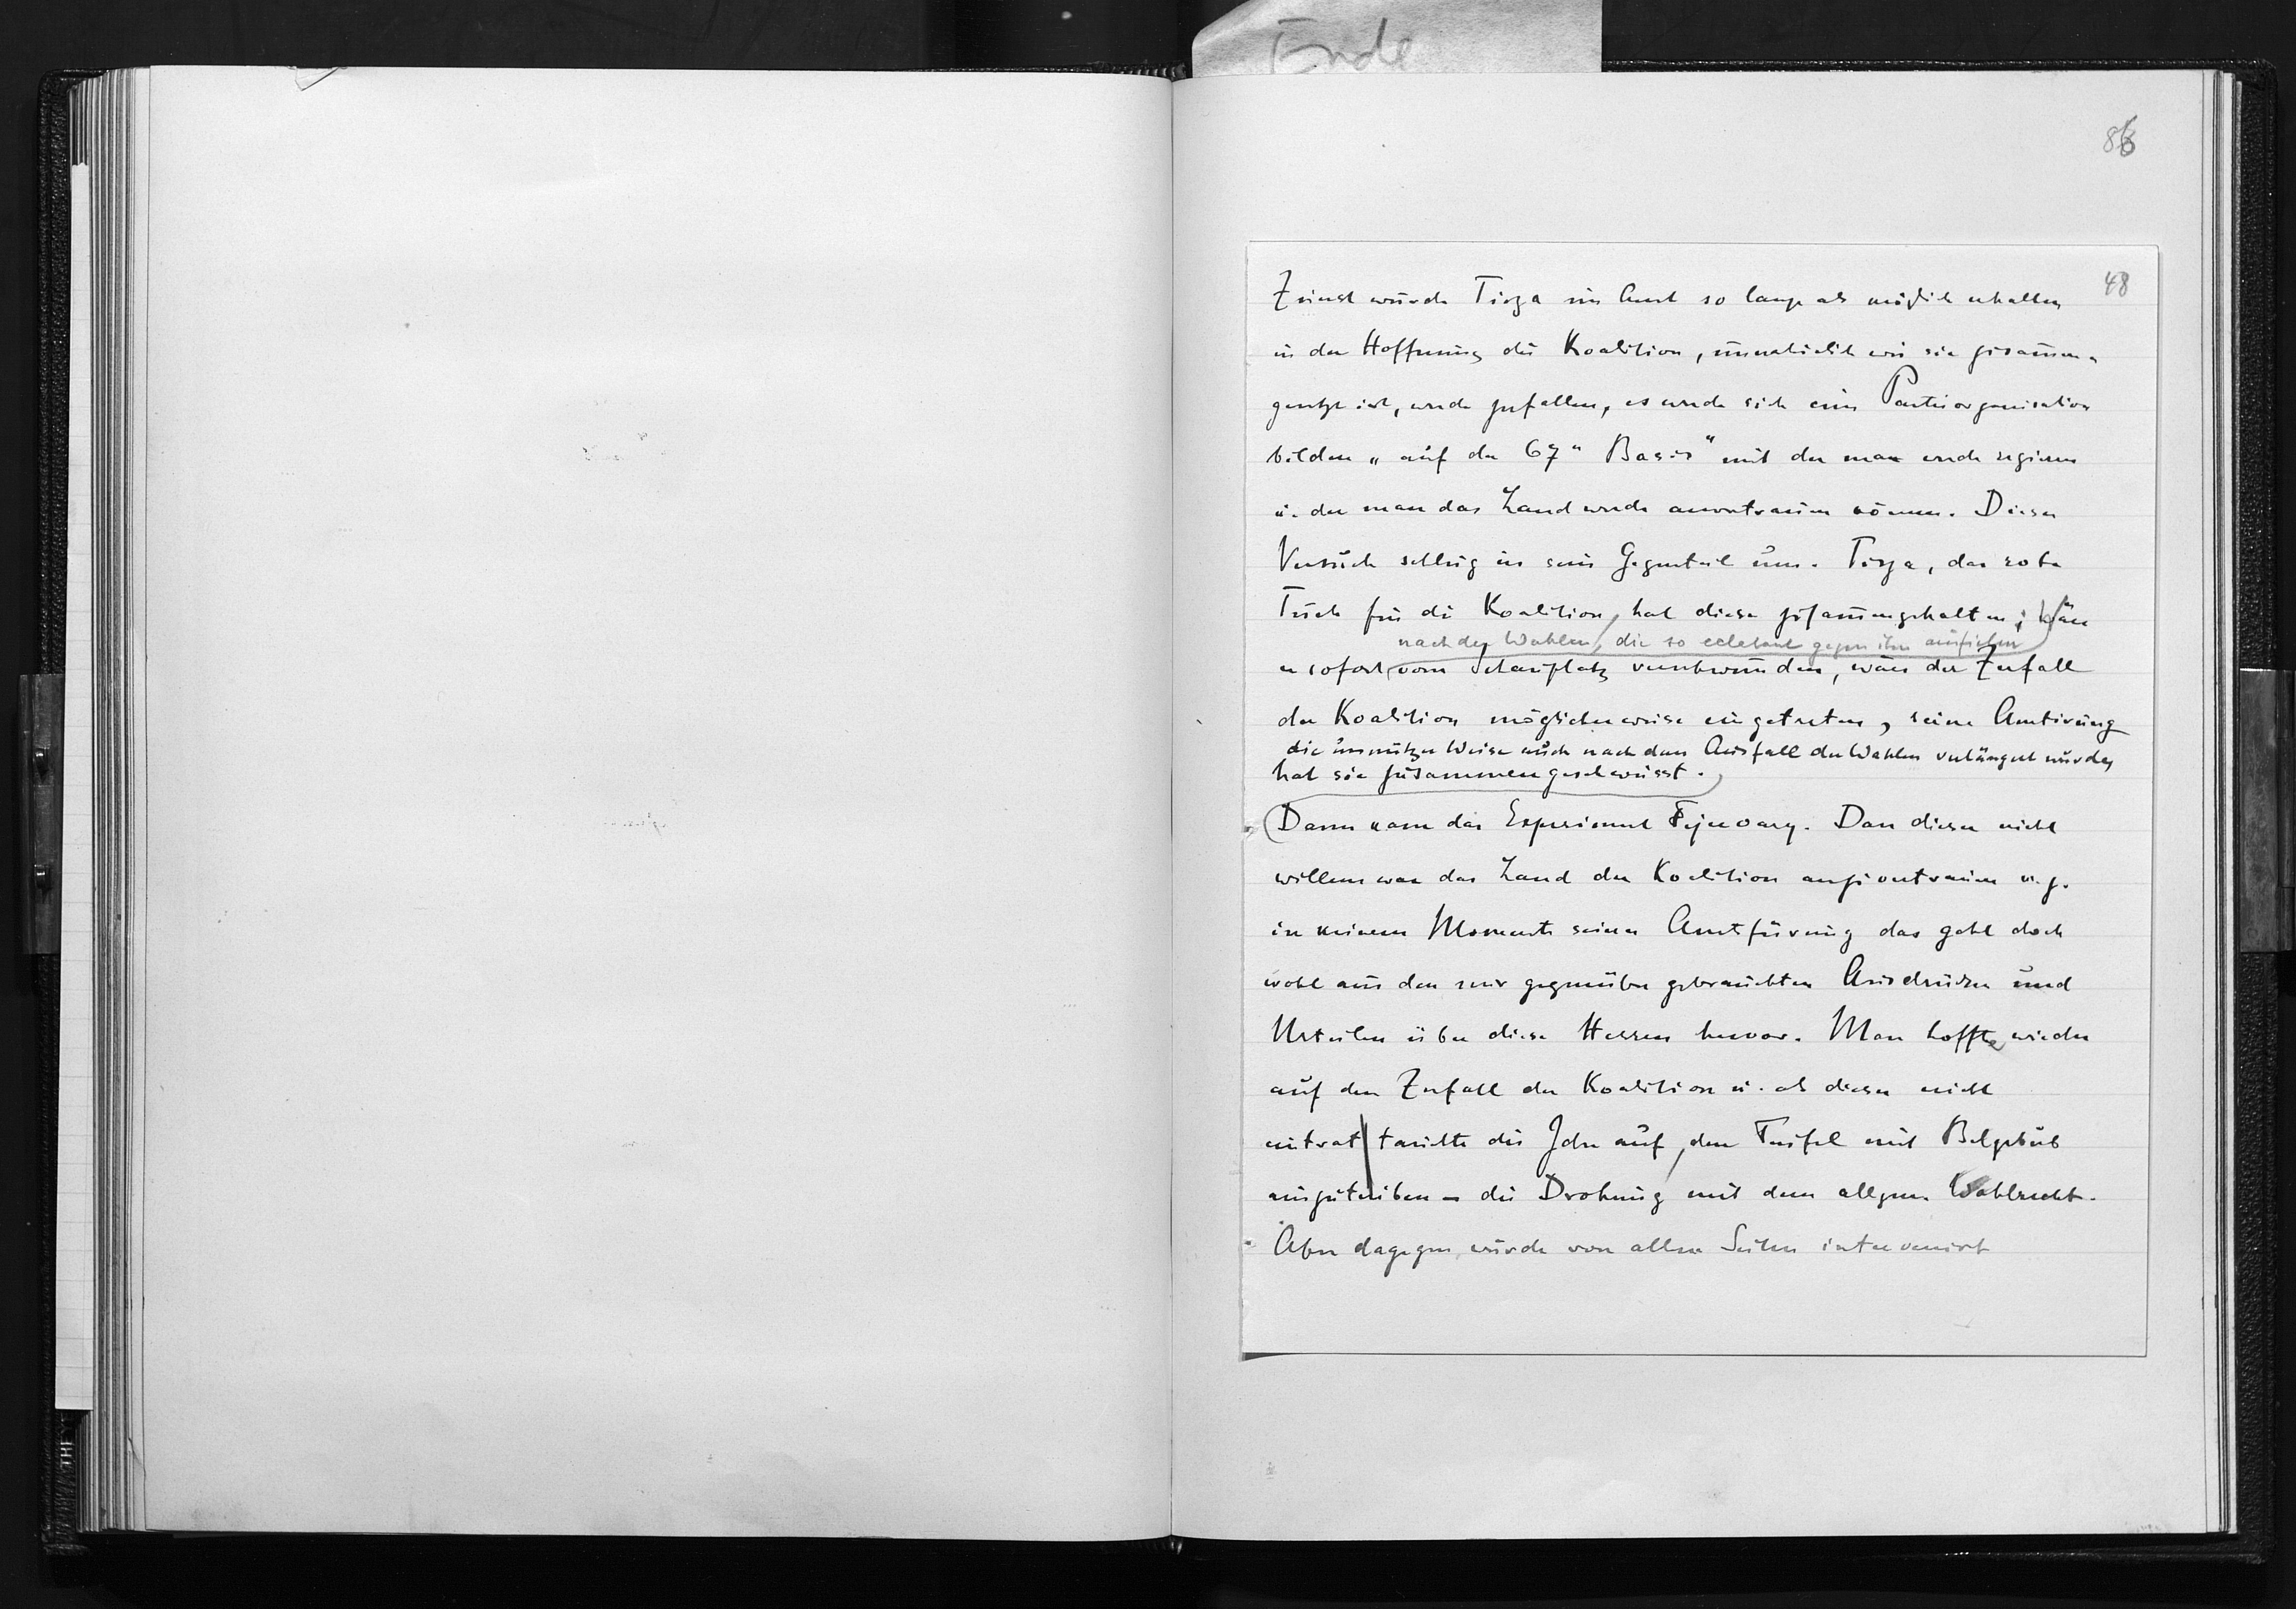 Ende
86
48
Zuerst wurde Tisza im Amt so lange als möglich erhalten
in der Hoffnung die Koalition, unnatürlich wie sie zusammen-
gesetzt ist, werde zerfallen, es werde sich eine Parteiorganisation
bilden „auf der 67" Basis" mit der man werde regieren
u. der man das Land werde anvertrauen können. Dieser
Versuch schlug in sein Gegenteil um. Tisza, das rote
Tuch für die Koalition, hat diese zusammengehalten; wäre
nach den Wahlen, die so eclatant gegen ihn ausfielen
er sofort vom Schauplatz verschwunden, wäre der Zerfall
der Koalition möglicherweise eingetreten, seine Amtirung
die unnützer Weise auch nach dem Ausfall der Wahlen verlängert wurde,
hat sie zusammengeschweisst.
Dann kam das Experiment Fejervary. Dass dieser nicht
willens war das Land der Koalition anzuvertrauen u. z.
in keinem Momente seiner Amtsfürung das geht doch
wohl aus den mir gegenüber gebrauchten Ausdrücken und
Urteilen über diese Herren hervor. Man hoffte wieder
auf den Zerfall der Koalition u. als dieser nicht
eintrat tauchte die Idee auf, den Teufel mit Belzebub
auszutreiben – die Drohung mit dem allgem. Wahlrecht.
Aber dagegen wurde von allen Seiten intervenirt